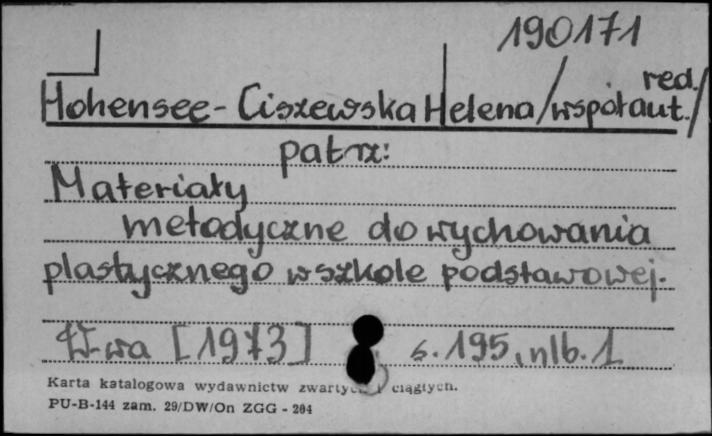 190171
red.
Hohensee-Ciszewska Helena /współaut./
patrz:
Materiały
metodyczne do wychowania
plastycznego w szkole podstawowej.
W-wa [1973] s. 195, nlb. 1
Karta katalogowa wydawnictw zwartych i ciągłych.
PU-B-144 zam. 29/DW/On ZGG - 204